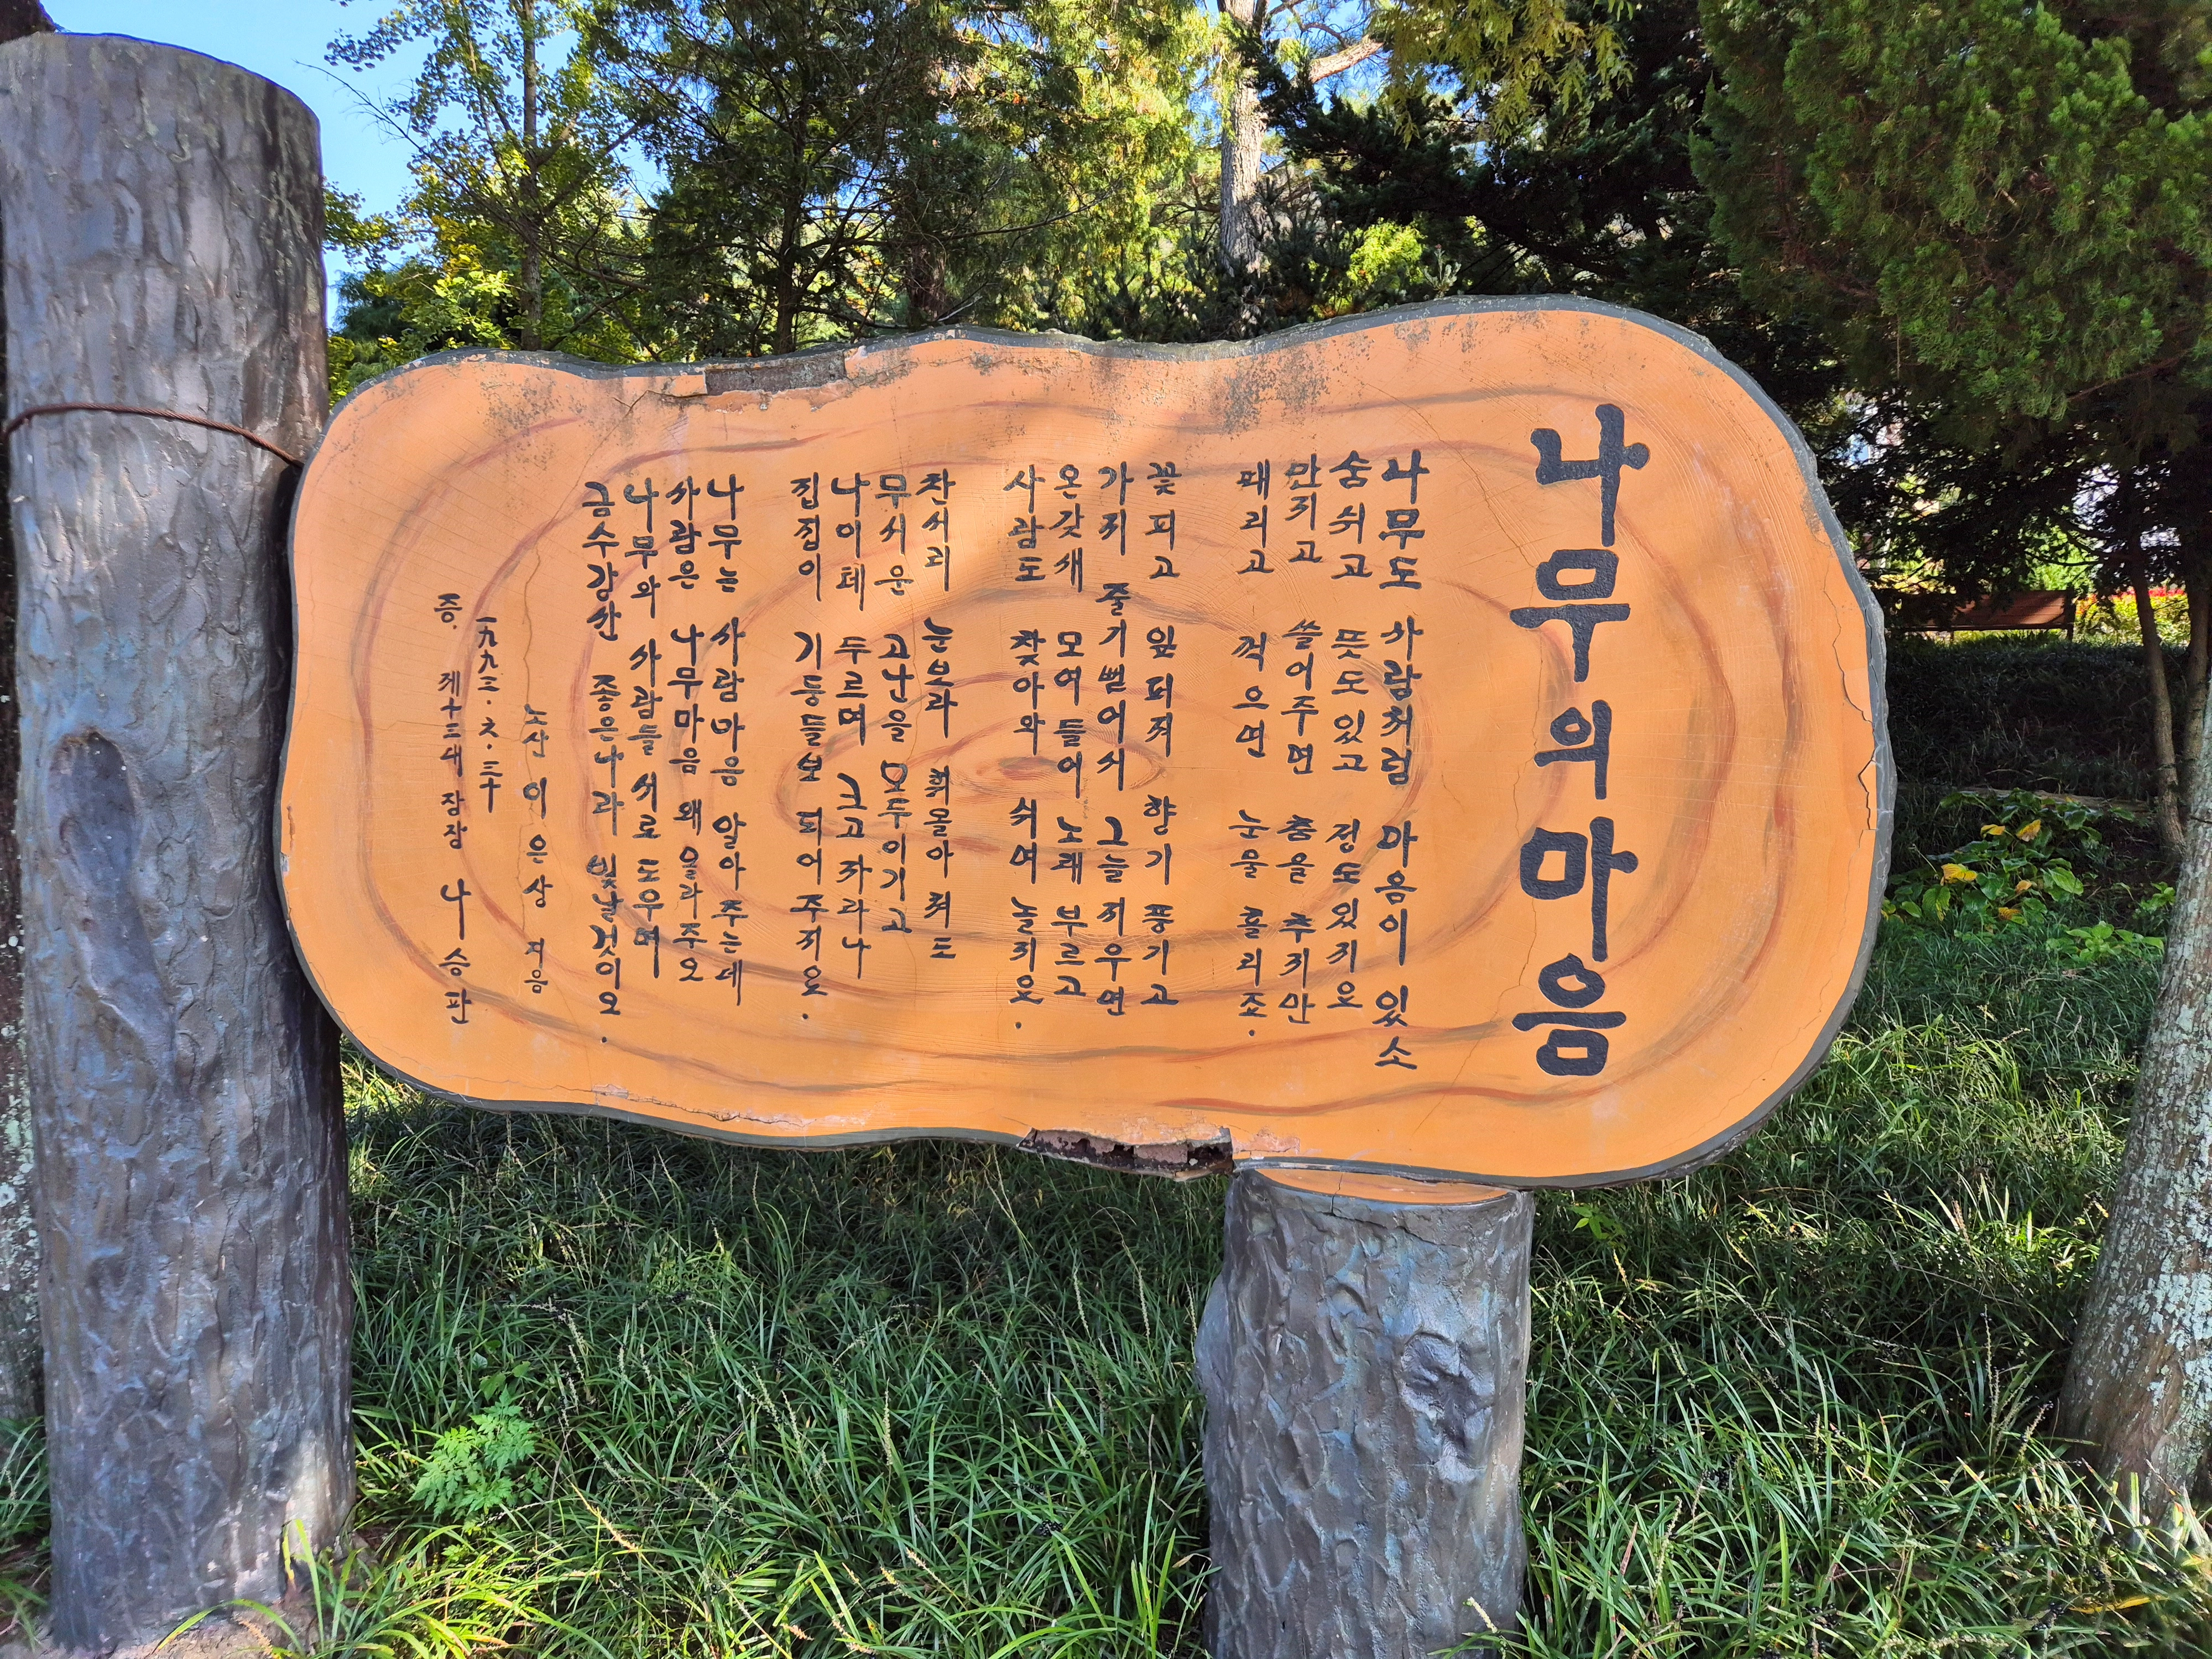 나무의마음
나무도 사람처럼 마음이 있소
숨쉬고 뜻도있고 정도있지요
만지고 쓸어주면 춤을 추지만
때리고 꺽으면 눈물 흘리죠.
꽃피고 잎퍼져 향기 풍기고
가지 줄기뻗어서 그늘지우면
온갖새 모여들어 노래 부르고
사람도 찾아와 쉬며 놀지요.
찬서리 눈보라 휘몰아 쳐도
무서운 고난을 모두이기고
나이테 두르며 크고 자라나
집집이 기둥들보 되어주지요.
나무는 사람마음 알아 주는데
사람은 나무마음 왜몰라주오
나무와 사람들 서로 도우며
금수강산 좋은나라 빛날것이오.
노산 이은상 지음
一九九三. 六. 三十
증. 제十三대 장장 나승판